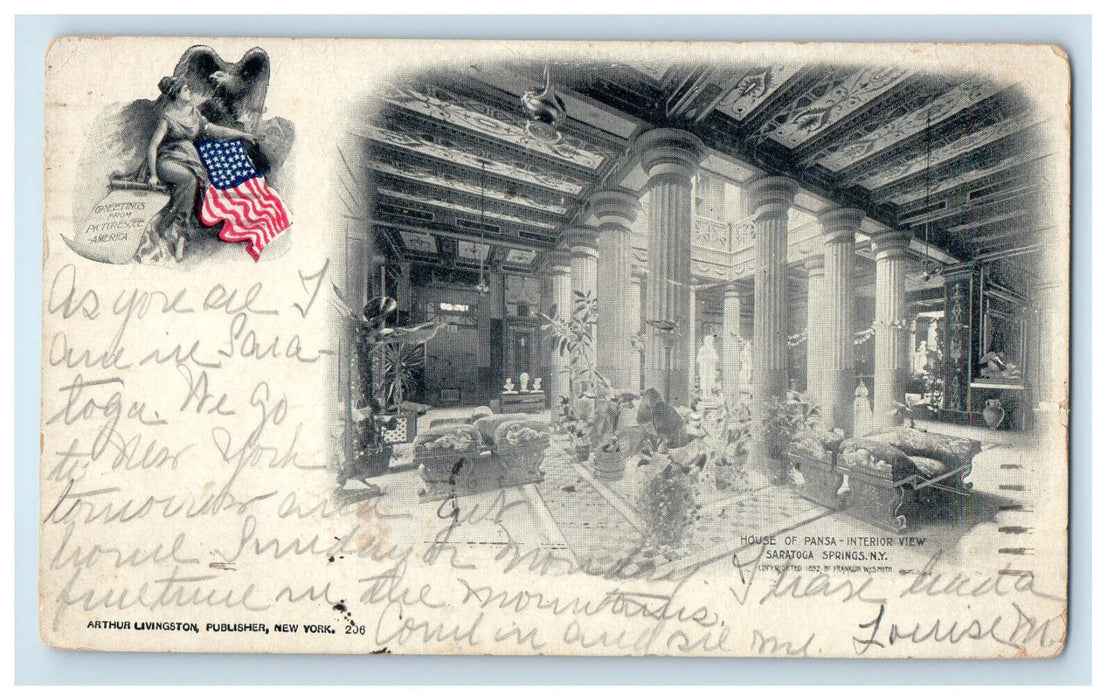 GREETINGS
FROM
PICTURESQUE
AMERICA.
As you see I
am in Sara-
toga. We go
to New York
tomorrow and get
home Sunday or Monday. I have had a
fine time in the mountains.
Come in and see me. Louise M.
HOUSE OF PANSA - INTERIOR VIEW
SARATOGA SPRINGS. N.Y.
COPYRIGHTED 1892 BY FRANKLIN W. SMITH
ARTHUR LIVINGSTON, PUBLISHER, NEW YORK. 206